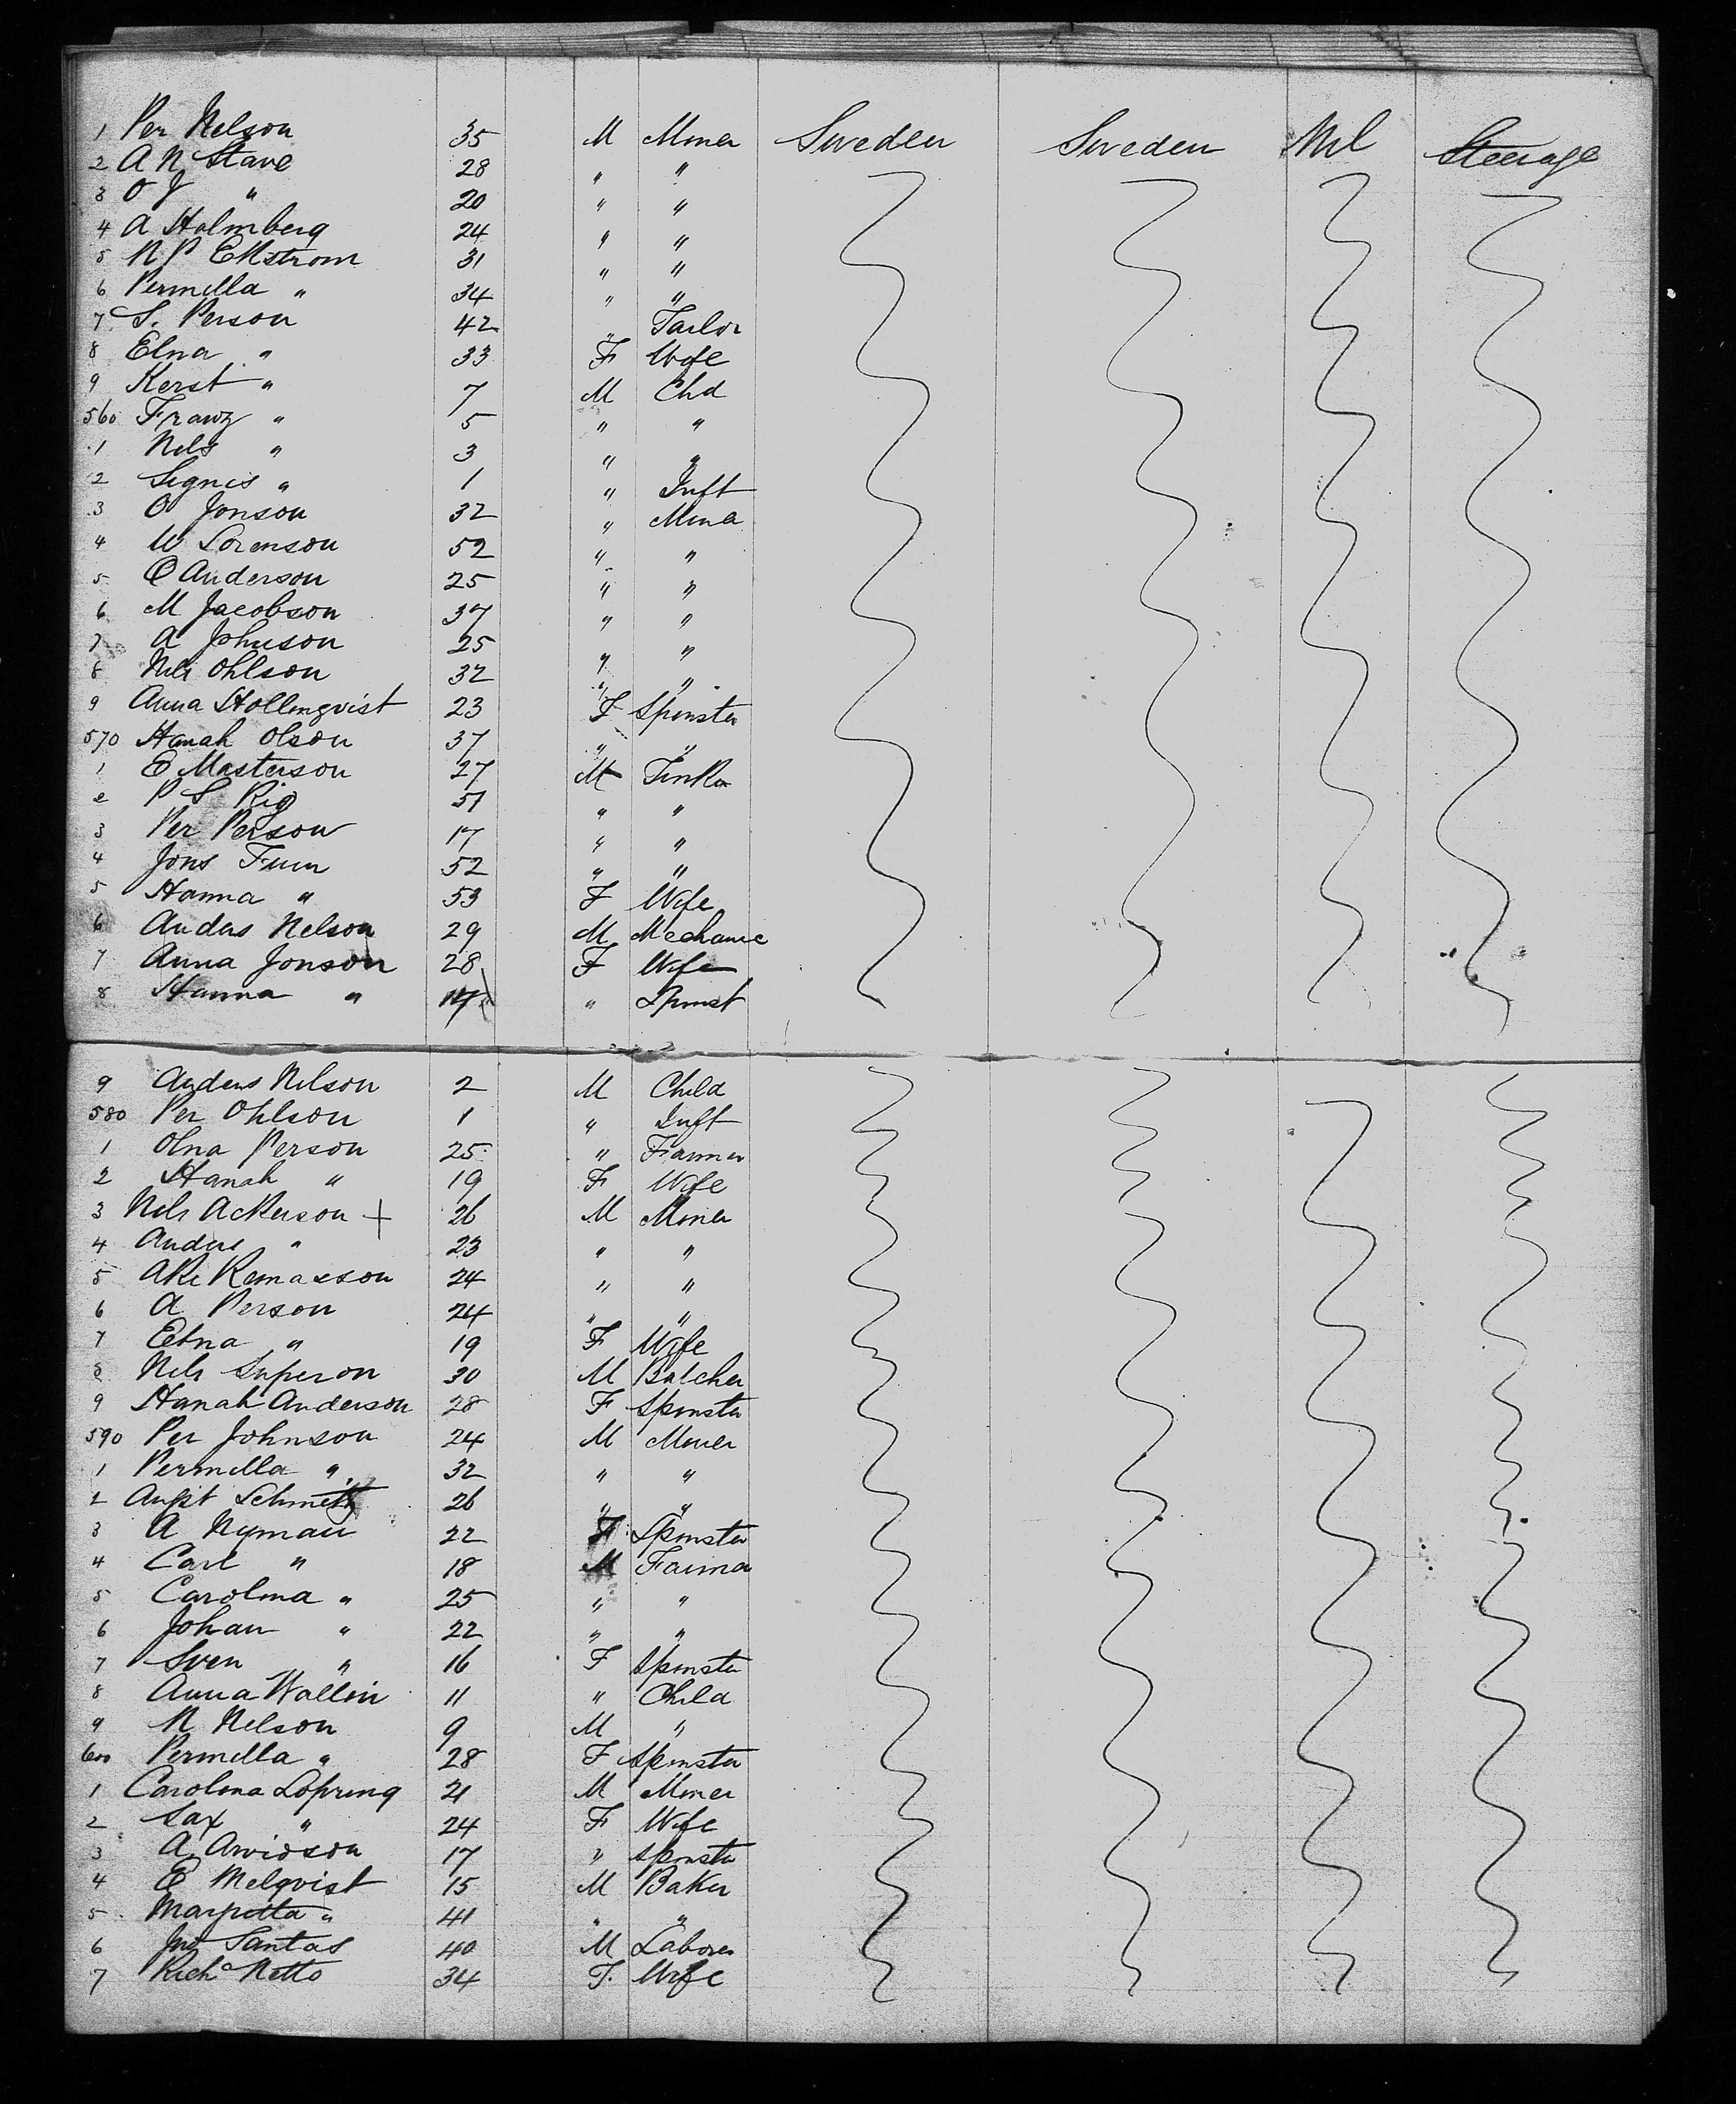 1 Per Nelson 35 M Miner Sweden Sweden Nil Steerage
2 A N Stave 28 " "
3 O J " 20 " "
4 A Holmberg 24 " "
5 N P Ekstrom 31 " "
6 Pernilla " 34 " "
7 S. Person 42 " Tailor
8 Elna " 33 F Wife
9 Kerst " 7 M Chd
560 Franz " 5 " "
1 Nels " 3 " "
2 Signis " 1 " Inft
3 O Jonson 32 " Miner
4 W Sorenson 52 " "
5 C Anderson 25 " "
6 M Jacobson 37 " "
7 A Johnson 25 " "
8 Nils Ohlson 32 " "
9 Anna Hollingvist 23 F Spinster
570 Hanah Olson 37 " "
1 E Masterson 27 M Tinker
2 P S Rig 51 " "
3 Per Person 17 " "
4 Jons 52 " "
5 Hanna " 53 F Wife
6 Anders Nelson 29 M Mechanic
7 Anna Jonson 28 F Wife
8 Hanna " " Spinst
9 Anders Nilson 2 M Child
580 Per Ohlson 1 " Inft
1 Olna Person 25 " Farmer
2 Hanah " 19 F Wife
3 Nils Ackerson + 26 M Miner
4 Anders " 23 " "
5 Ake 24 " "
6 A Person 24 " "
7 Elna " 19 F Wife
8 Nils Superon 30 M Butcher
9 Hanah Anderson 28 F Spinster
590 Per Johnson 24 M Miner
1 Pernilla " 32 " "
2 Augst Schmidt 26 " "
3 A Nyman 22 F Spinster
4 Carl " 18 M Farmer
5 Carolina " 25 " "
6 Johan " 22 " "
7 Sven " 16 F Spinster
8 Anna Wallin 11 " Child
9 N Nelson 9 M "
600 Pernilla " 28 F Spinster
1 Carolina Lofring 21 M Miner
2 Sax " 24 F Wife
3 A Arvidson 17 " Spinster
4 E Melqvist 15 M Baker
5 Margretta " 41 " "
6 Jno Santas 40 M Laborer
7 Richd Netto 34 F. Wife